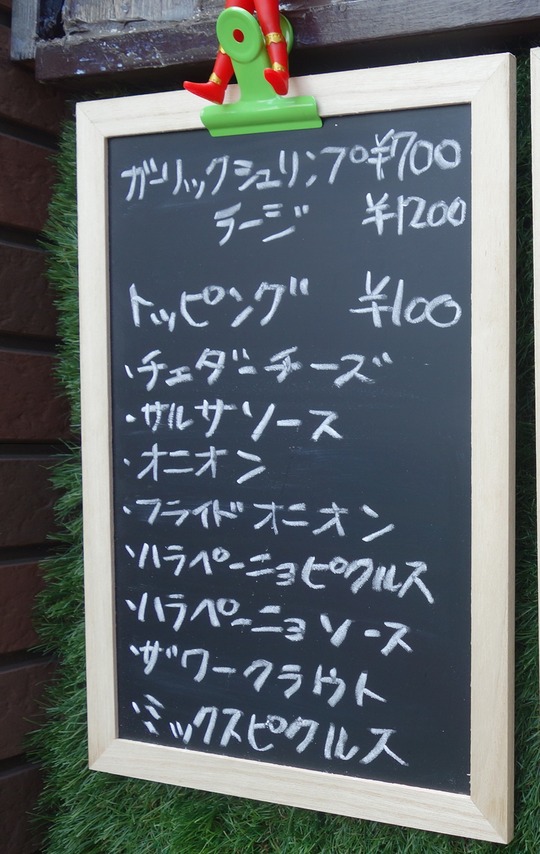 ガーリックシュリンプ ¥700
ラージ ¥1200
トッピング ¥100
・チェダーチーズ
・サルサソース
・オニオン
・フライドオニオン
・ハラペーニョピクルス
・ハラペーニョソース
・ザワークラウト
・ミックスピクルス